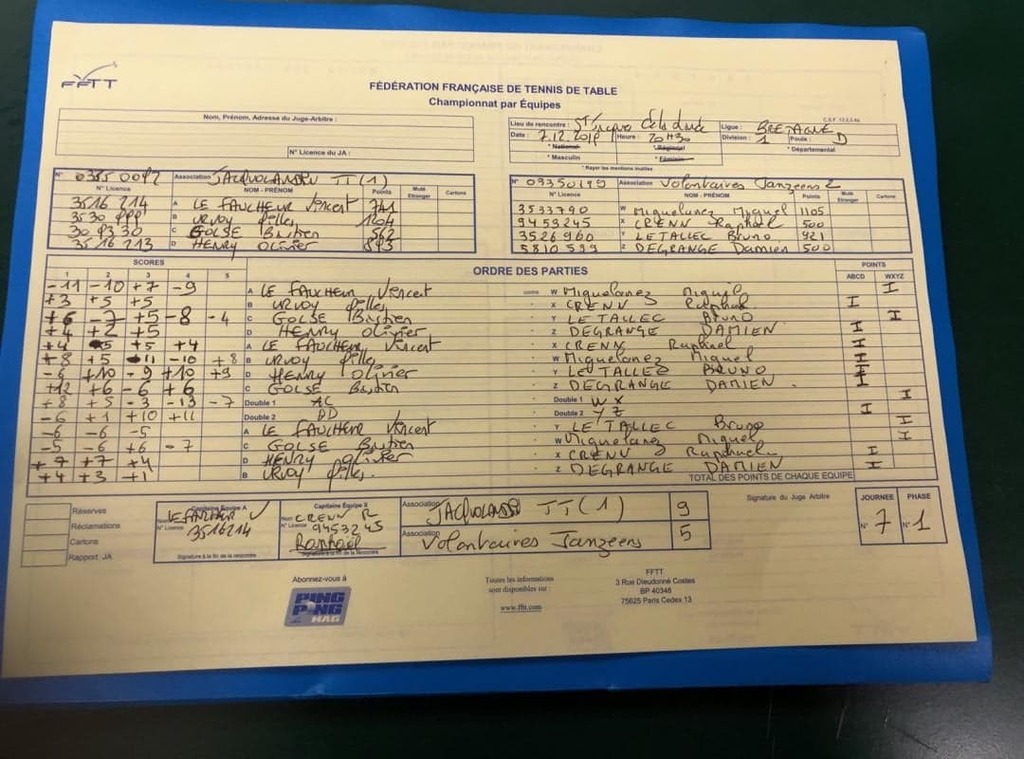 FFTT
FÉDÉRATION FRANÇAISE DE TENNIS DE TABLE
Championnat par Équipes
Nom, Prénom, Adresse du Juge-Arbitre :
N° Licence du JA :
Lieu de rencontre : ST Jacques de la Lande
Ligue : BRETAGNE
Date : 7.12.2018 Heure : 20H30 Division : 1 Poule : D
* National * Régional * Départemental
* Masculin * Féminin
* Rayer les mentions inutiles
Association JACQUOLANDIN TT (1)
N° Licence NOM - PRÉNOM Points Muté Etranger Cartons
3516 214 A LE FAUCHEUR Vincent 741
B URVOY Gilles 1204
C GOLSE Bastien 562
3516 213 D HENRY Olivier 893
N° 03350195 Association Volontaires Janzéens 2
N° Licence NOM - PRÉNOM Points Muté Etranger Cartons
3533790 W Miguelanez Miguel 1105
9453245 X CRENN Raphaël 500
3526960 Y LE TALLEC Bruno 921
5810599 Z DEGRANGE Damien 500
SCORES ORDRE DES PARTIES POINTS
1 2 3 4 5 ABCD WXYZ
-11 -10 +7 -9 A LE FAUCHEUR Vincent contre W Miguelanez Miguel I
+3 +5 +5 B URVOY Gilles X CRENN Raphael I
+6 -7 +5 -8 -4 C GOLSE Bastien Y LE TALLEC Bruno I
+4 +2 +5 D HENRY Olivier Z DEGRANGE DAMIEN I
+4 -5 +5 +4 A LE FAUCHEUR Vincent X CRENN Raphael I
+8 +5 -11 -10 +8 B URVOY Gilles W Miguelanez Miguel I
-6 +10 -9 +10 +9 D HENRY Olivier Y LE TALLEC BRUNO I
+12 +6 -6 +6 C GOLSE Bastien Z DEGRANGE DAMIEN I
+8 +5 -3 -13 -7 Double 1 AC Double 1 WX I
-6 +1 +10 +11 Double 2 BD Double 2 YZ I
-6 -6 -5 A LE FAUCHEUR Vincent Y LE TALLEC Bruno I
-5 -6 +6 -7 C GOLSE Bastien W Miguelanez Miguel I
+7 +7 +4 D HENRY Olivier X CRENN Raphael I
+4 +3 +1 B URVOY Gilles Z DEGRANGE DAMIEN I
TOTAL DES POINTS DE CHAQUE EQUIPE
Réserves
Réclamations
Cartons
Rapport JA
Capitaine Équipe A
LE FAUCHEUR V
N° Licence 3516214
Signature à la fin de la rencontre
Capitaine Équipe X
Nom CRENN R
N° Licence 9453245
Raphaël
Signature à la fin de la rencontre
Association JACQUOLANDIN TT (1) 9
Association Volontaires Janzéens 5
Signature du Juge Arbitre
JOURNEE PHASE
N° 7 N° 1
Abonnez-vous à
PING PONG MAG
Toutes les informations
sont disponibles sur :
www.fftt.com
FFTT
3 Rue Dieudonné Costes
BP 40348
75625 Paris Cedex 13